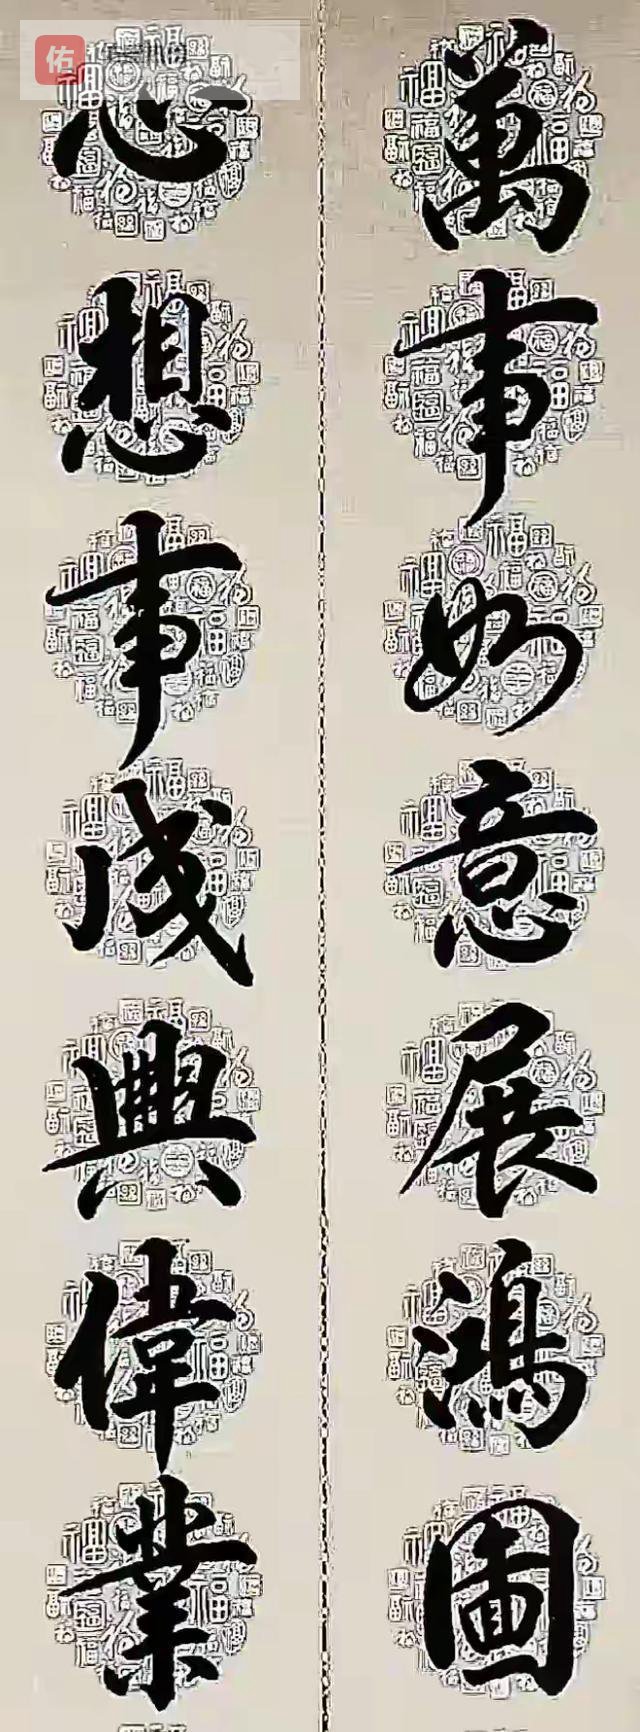 萬事如意展鴻圖
心想事成興偉業
佑